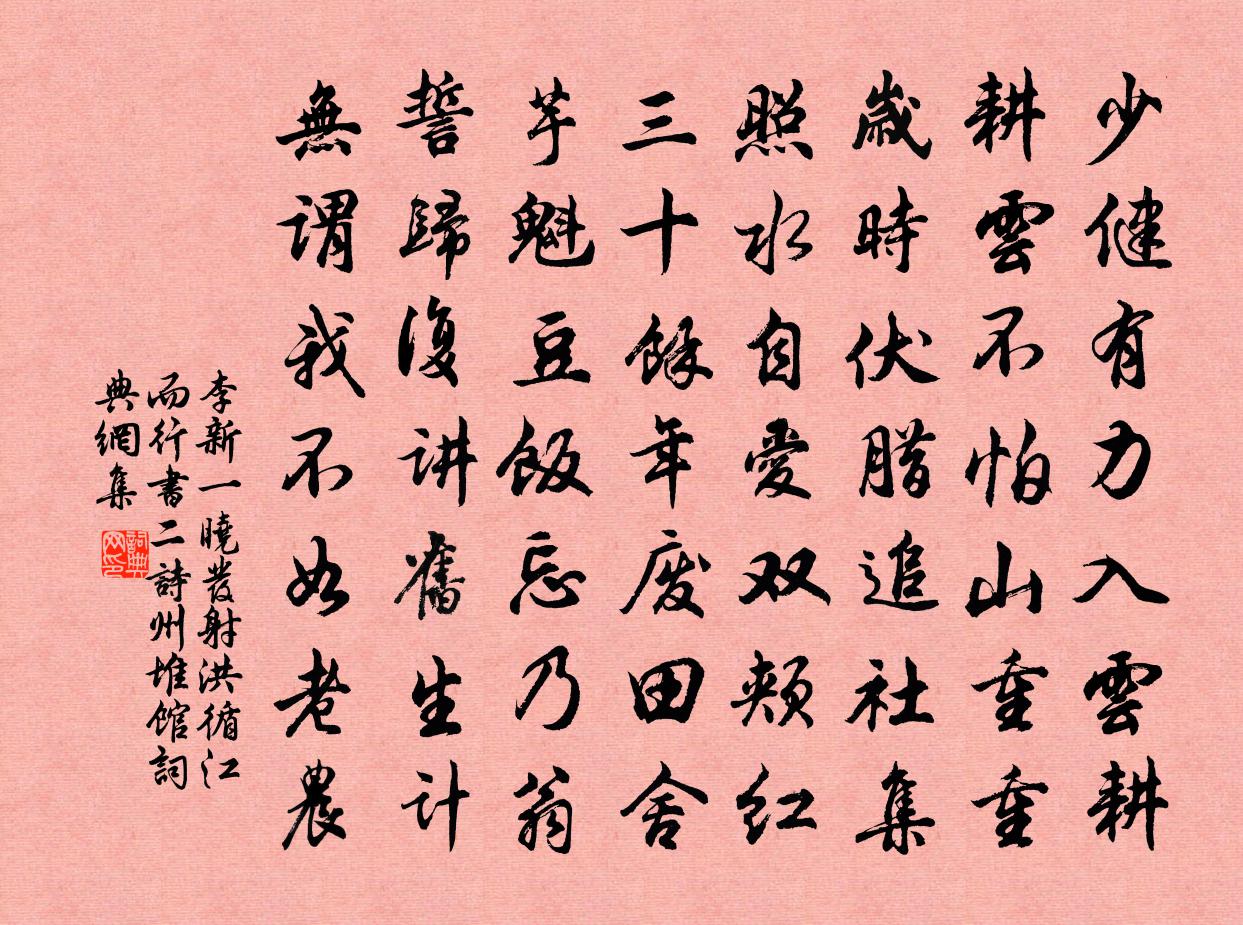 少健有力入雲耕
耕雲不怕山重重
歲時伏腊追社集
照水自愛双頰红
三十餘年废田舍
芋魁豆飯忘乃翁
誓歸復讲舊生计
無谓我不如老農
李新一曉发射洪循江
而行書二詩州堆館詞
典網集
詞典网印